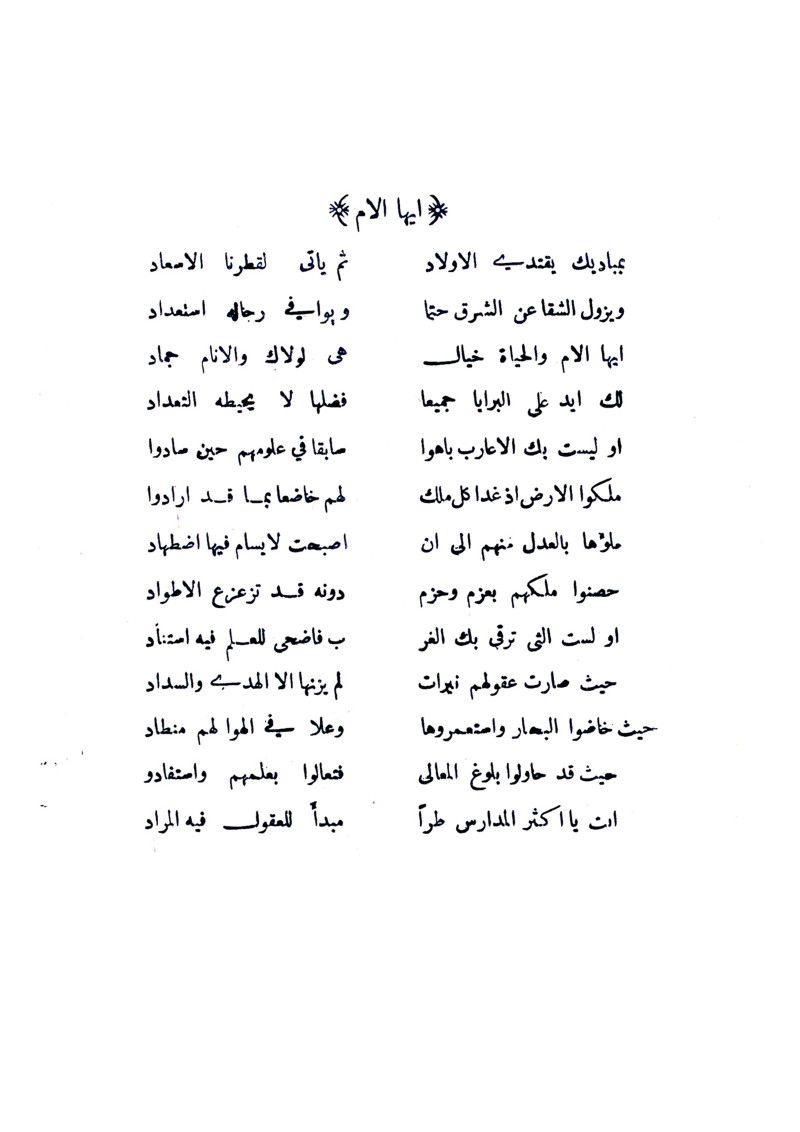 ﴿ ايها الام ﴾
بمباديك يقتدي الاولاد ثم ياتى لقطرنا الاسعاد
ويزول الشقا عن الشرق حتما ويوافي رجاله استعداد
ايها الام والحياة خيال هى لولاك والانام جماد
لك ايد على البرايا جميعا فضلها لا يحيطه التعداد
او ليست بك الاعارب باهوا سابقا في علومهم حين صادوا
ملكوا الارض اذ غدا كل ملك لهم خاضعا بما قد ارادوا
ملؤها بالعدل منهم الى ان اصبحت لا يسام فيها اضطهاد
حصنوا ملكهم بعزم وحزم دونه قد تزعزع الاطواد
او لست التى ترقى بك الغر ب فاضحى للعلم فيه استناد
حيث صارت عقولهم نيرات لم يزنها الا الهدى والسداد
حيث خاضوا البحار واستعمروها وعلا في الهوا لهم منطاد
حيث قد حاولوا بلوغ المعالى فتعالوا بعلمهم واستفادو
انت يا اكثر المدارس طراً مبدأً للعقول فيه المراد